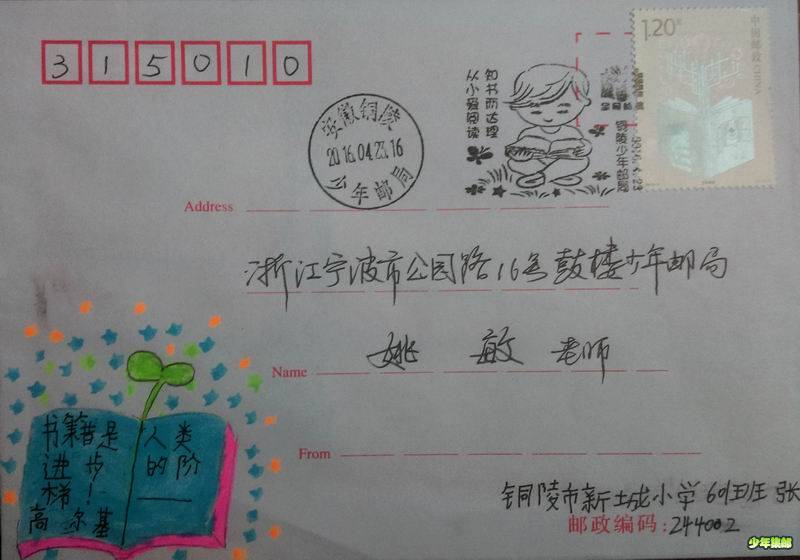 315010
1.20元
中国邮政
CHINA
安徽铜陵
2016.04.23.16
少年邮局
知书而达理
从小爱阅读
铜陵少年邮局
2016.4.23
Address
浙江宁波市公园路16号鼓楼少年邮局
Name 姚敏 老师
From
铜陵市新城小学601班 张
邮政编码:244002
书籍是人类
进步的阶
梯!——
高尔基
少年集邮